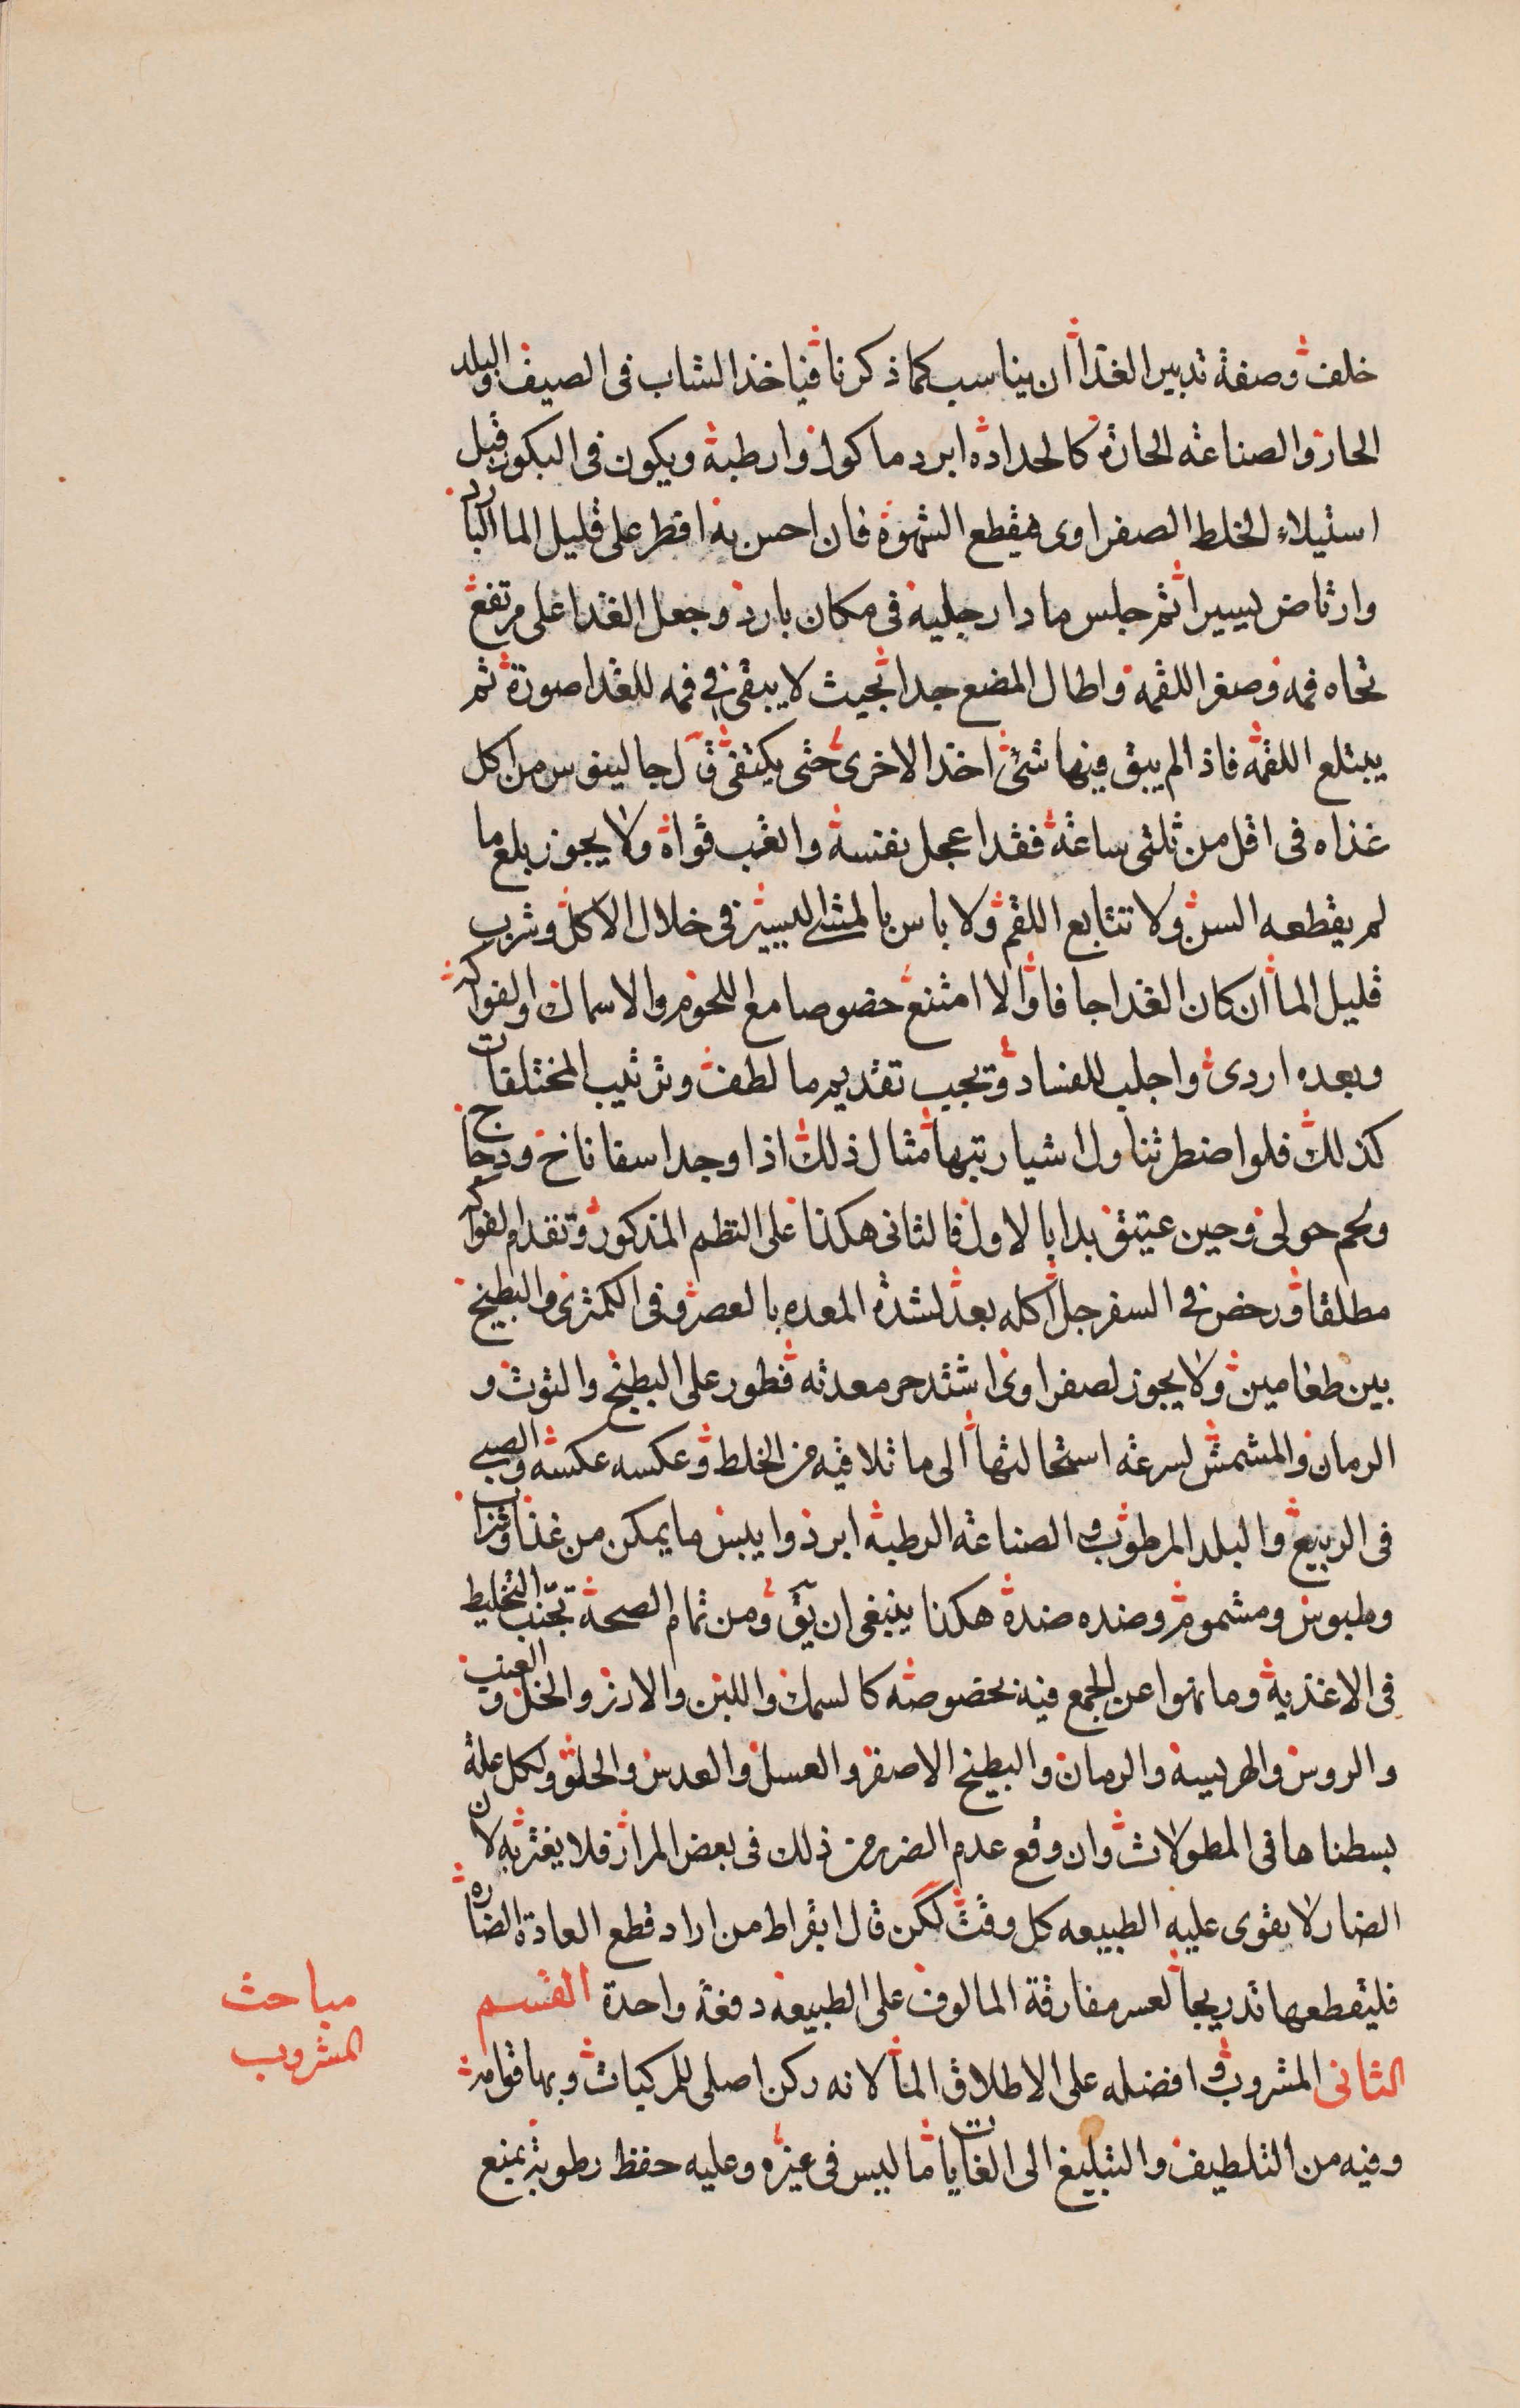 خلفت وصفة تدبير الغذا ان يناسب كما ذكرنا فياخذ الشاب فى الصيف والبلد
الحار والصناعه الحارة كالحداده ابرد ماكول وارطبة ويكون فى البكور قبل
استيلاء الخلط الصفراوى فيقطع الشهوة فان احس به افطر على قليل الما البارد
وارتاض يسيرا ثم جلس مادا رجليه فى مكان بارد وجعل الغذا على مرتفع
تجاه فمه وصغر اللقمه واطال المضع جدا بحيث لا يبقى فى فمه للغذا صورة ثم
يبتلع اللقمه فاذا لم يبق فيها شئ اخذ الاخرى حتى يكتفى قال جالينوس من اكل
غذاه فى اقل من ثلثى ساعة فقد اعجل نفسة واتعب قواة ولا يجوز بلع ما
لم يقطعه السن ولا تتابع اللقم ولا باس بالمشى اليسير فى خلال الاكل وشرب
قليل الما ان كان الغذا جافا والا امتنع خصوصا مع اللحوم والاسماك والفواكه
وبعده اردى واجلب للفساد ويجب تقديم ما لطف وترتيب المختلفات
كذلك فلو اضطر تناول اشيا رتبها مثال ذلك اذا وجد اسفاناخ ودجاج
ولحم حولى وجبن عتيق بدا بالاول فالثانى هكذا على النظم المذكور وتقدم الفواكه
مطلقا ورخص فى السفرجل اكله بعد لشدة المعده بالعصر وفى الكمثرى والبطيخ
بين طعامين ولا يجوز لصفراوى اشتد حر معدته فطور على البطيخ والتوت و
الرمان والمشمش لسرعه استحالتها الى ما تلاقيه من الخلط وعكسه عكسه والصبى
فى الربيع والبلد المرطوب والصناعه الرطبه ابرد وايبس ما يمكن من غذا وشراب
وملبوس ومشموم وضده ضدة هكذا ينبغى ان يق ومن تمام الصحة تجنب التخليط
فى الاغذية وما نهوا عن الجمع فيه بخصوصه كالسمك واللبن والارز والخل والعنب
والروس والهريسه والرمان والبطيخ الاصفر والعسل والعدس والحلو ولكل علة
بسطناها فى المطولات وان وقع عدم الضرر من ذلك فى بعض المرار فلا يغتر به لان
الضار لا يقوى عليه الطبيعه كل وقت لكن قال ابقراط من اراد قطع العادة الضاره
فليقطعها تدريجا لعسر مفارقة المالوف على الطبيعه دفعة واحدة القسم
الثانى المشروب وافضله على الاطلاق الما لانه ركن اصلى للمركبات وبها قوامه
وفيه من التلطيف والتبليغ الى الغايات ما ليس فى غيره وعليه حفظ رطوبة بمنع
مباحث
المشروب